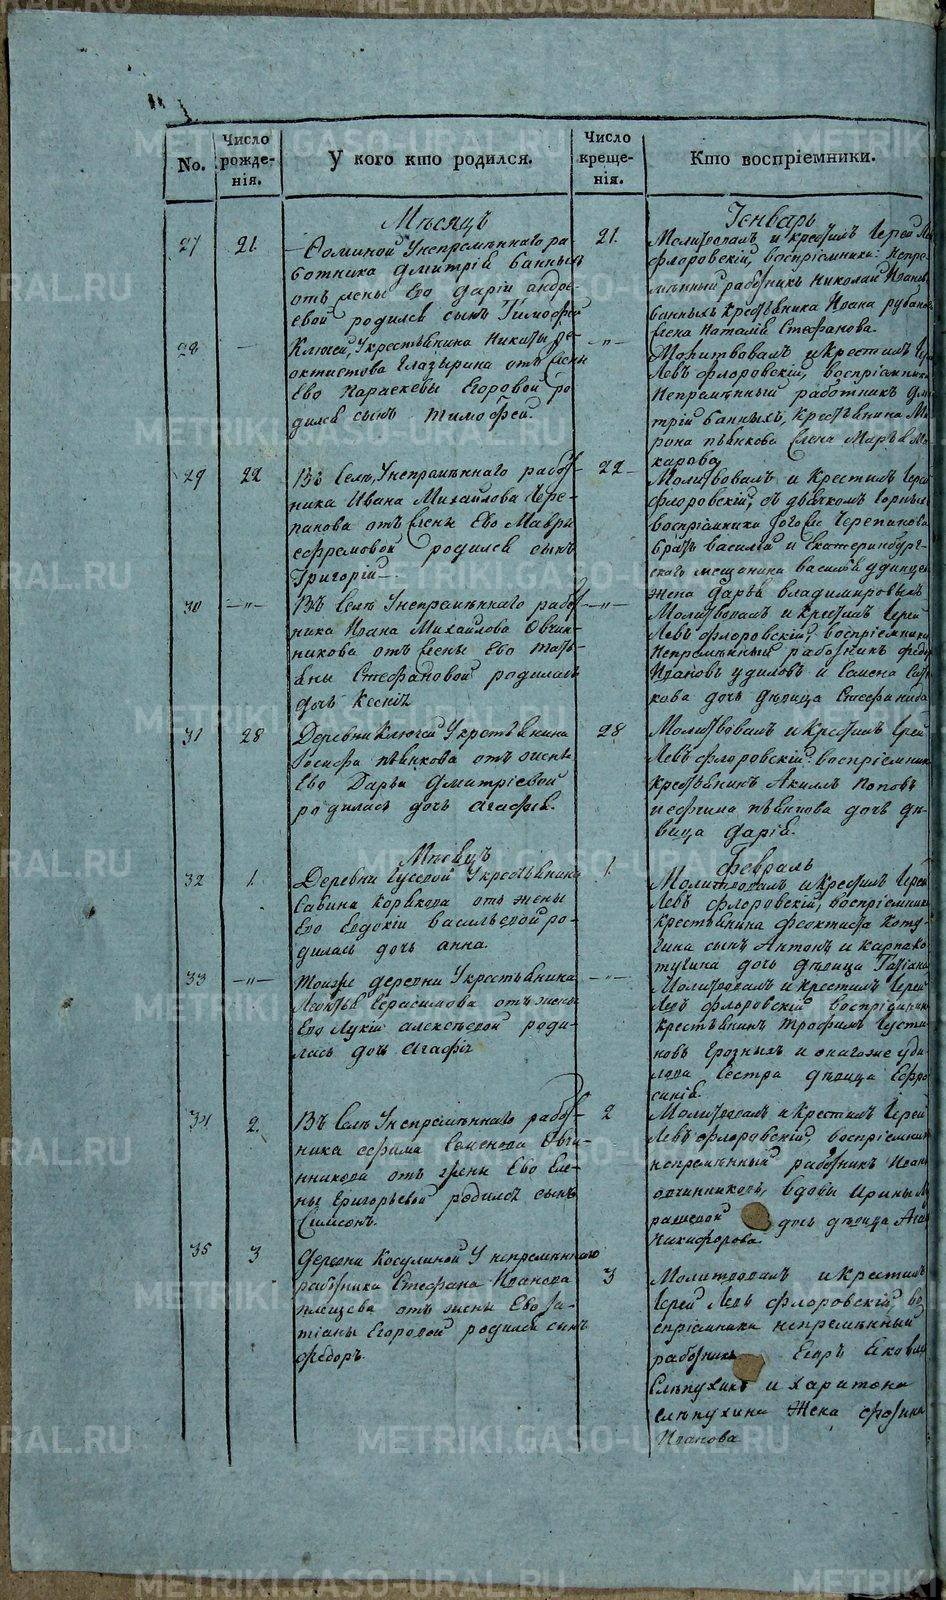 No.
Число рожде-нія.
У кого кто родился.
Число креще-нія.
Кто воспріемники.
Мѣсяцъ
Генварь
27
21
Фоминой У непремѣннаго ра-
ботника Дмитрія банныхъ
отъ жены Его Даріи андре-
евой родился сынъ Тимофей
21
Молитвовалъ и крестилъ Іерей
флоровскій, воспріемники: Непре-
мѣнный работникъ Николай Иванов
банныхъ крестьянина Ивана
жена Наталія Стефанова.
28
Ключей, У крестьянина Никиты фе-
октистова Глазырина отъ жены
Его Параскевы Егоровой ро-
дился сынъ Тимофей.
-"-
Молитвовалъ и Крестилъ Іерей
Левъ флоровскій, воспріемники
Непремѣнный работникъ Дми
трій банныхъ, Крестьянина Ми
рона пьянкова жена Марья Ма
карова
29
22
Въ Селѣ, У непремѣннаго работ-
ника Ивана Михайлова Чере-
панова отъ жены Его Мавры
ефремовой родился сынъ
Григорій
22
Молитвовалъ и Крестилъ Іерей
флоровскій, съ дьячкомъ
воспріемники того же Черепанова
братъ василій и Екатеринбург-
скаго мещанина василія
жена Дарья владимировыхъ
30
-"-
Въ Селѣ У непремѣннаго работ
ника Ивана Михайлова Овчин-
никова отъ жены Его Тать-
яны Стефановой родилась
дочь Ксенія
-"-
Молитвовалъ и крестилъ Іерей
Левъ флоровскій, воспріемники
Непремѣнный работникъ федор
Ивановъ удиловъ и Семена
кова дочь дѣвица Стефанида
31
28
Деревни Ключей У крестьянина
Іосифа пьянкова отъ жены
Его Дарьи Дмитріевой
родилась дочь Агафья.
28
Молитвовалъ и Крестилъ Іерей
Левъ флоровскій воспріемники
крестьянинъ Акиллъ Поповъ
и ефима пьянкова дочь дѣ-
вица Дарія.
Мѣсяцъ
Февраль
32
1.
Деревни Гусевой У крестьянина
Савина Корякова отъ жены
Его Евдокіи васильевой ро-
дилась дочь анна.
1.
Молитвовалъ и Крестилъ Іерей
Левъ флоровскій, воспріемники
крестьянина феоктиста Коту-
гина сынъ Антонъ и карпа ко
тугина дочь дѣвица Татіана
33
-"-
Тоиже деревни У крестьянина
Леонтья Герасимова отъ жены
Его Лукіи алексѣевой роди-
лась дочь Агафія
-"-
Молитвовалъ и крестилъ Іерей
Левъ флоровскій воспріемники
крестьянинъ Трофимъ Густи
новъ Грозныхъ и онагоже уди-
лова Сестра дѣвица Ефро
синія.
34
2.
Въ Селѣ У непремѣннаго работ-
ника ефима Семенова Овчи-
нникова отъ жены Его Еле-
ны Григорьевой родился сынъ
Симеонъ.
2
Молитвовалъ и Крестилъ Іерей
Левъ флоровскій, воспріемники
непремѣнный работникъ Иванъ
овчинниковъ, вдовы Ирины
дочь дѣвица
Никифорова
35
3
Деревни Косулиной У непремѣннаго
работника Стефана Иванова
плещева отъ жены Его Та-
тіаны Егоровой родился сынъ
Федоръ.
3
Молитвовалъ и крестилъ
Іерей Левъ флоровскій, во
спріемники непремѣнный
работникъ Егоръ Яковл
Слѣпухинъ и харитона
слѣпухина жена
Иванова
METRIKI.GASO-URAL.RU